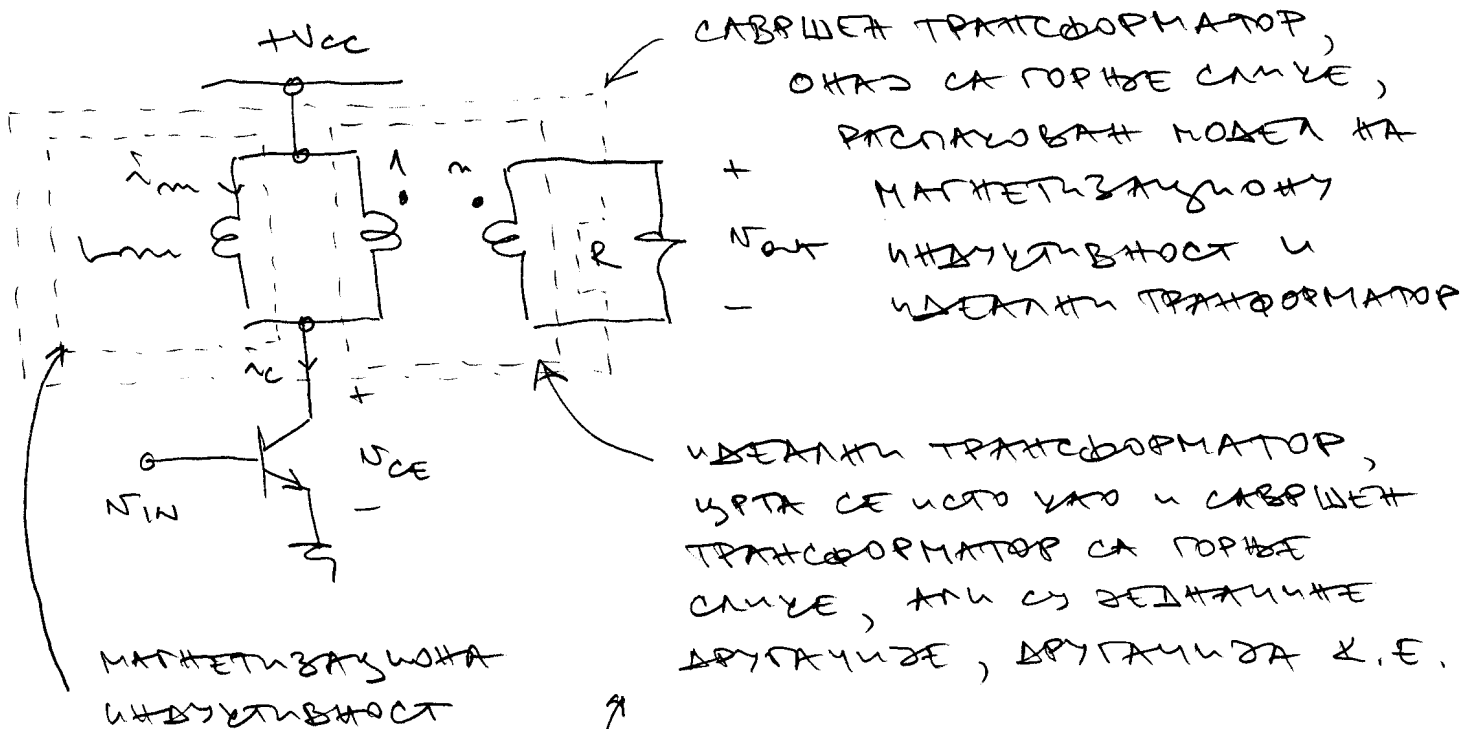 +VCC
САВРШЕН ТРАНСФОРМАТОР,
ОНАЈ СА ГОРЊЕ СЛИКЕ,
РАСПАКОВАН МОДЕЛ НА
МАГНЕТИЗАЦИОНУ
ИНДУКТИВНОСТ И
ИДЕАЛНИ ТРАНФОРМАТОР
im
1 n
Lm
R
+
vout
−
iC
+
vCE
−
vIN
ИДЕАЛНИ ТРАНСФОРМАТОР,
ЦРТА СЕ ИСТО КАО И САВРШЕН
ТРАНСФОРМАТОР СА ГОРЊЕ
СЛИКЕ, АЛИ СУ ЈЕДНАЧИНЕ
ДРУГАЧИЈЕ, ДРУГАЧИЈА К.Е.
МАГНЕТИЗАЦИОНА
ИНДУКТИВНОСТ